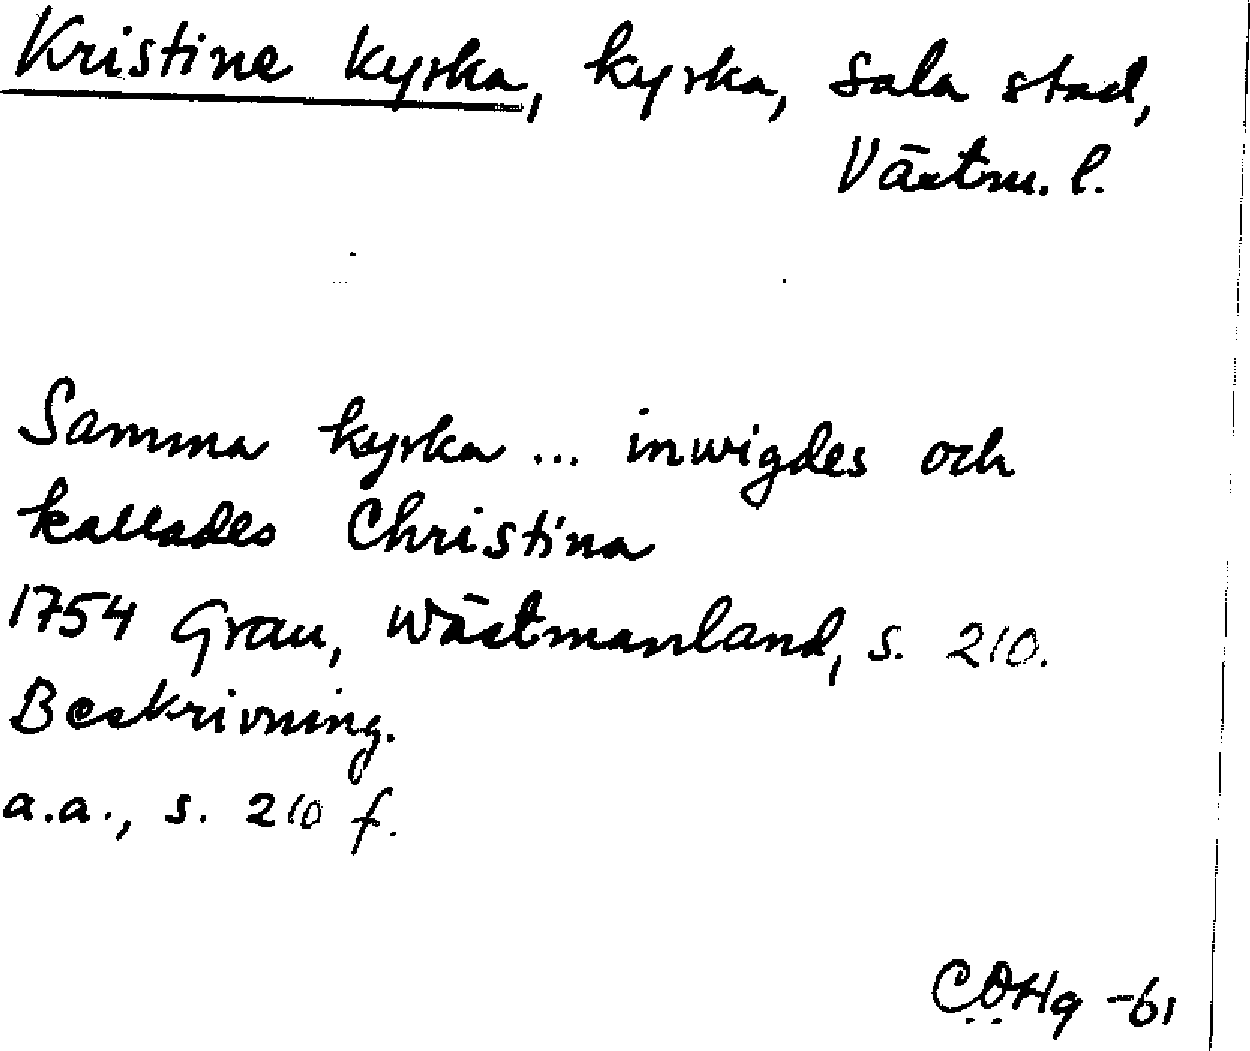 Kristine kyrka, kyrka, Sala stad,
Västm. l.
Samma kyrka ... inwigdes och
kallades Christina
1754 Grau, Wästmanland, s. 210.
Beskrivning.
a.a., s. 210 f.
COHg -61